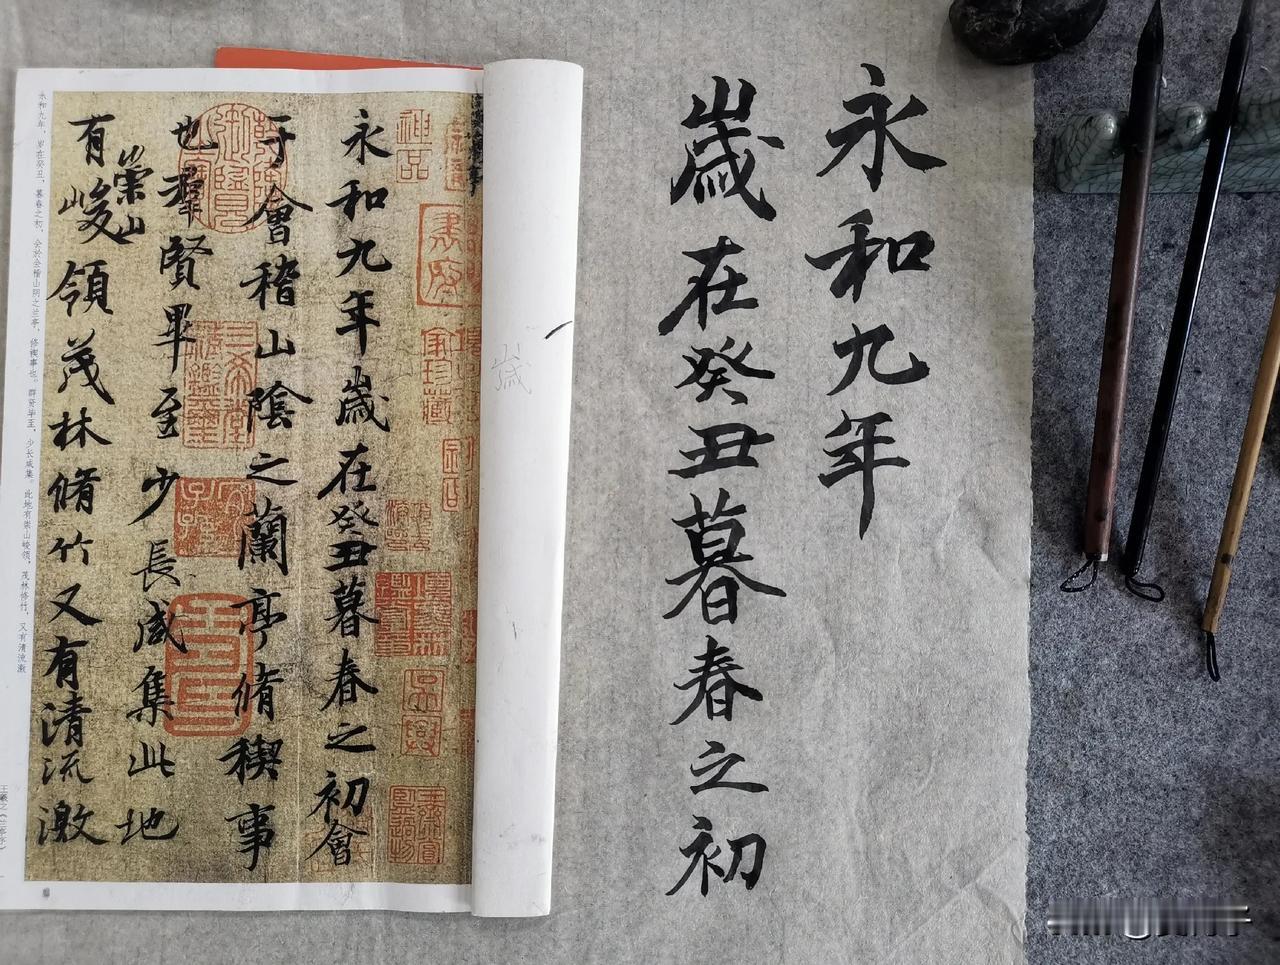 永和九年
歲在癸丑暮春之初
歲
永和九年歲在癸丑暮春之初會
于會稽山陰之蘭亭脩稧事
也羣賢畢至少長咸集此地
有崇山峻領茂林脩竹又有清流激
永和九年，岁在癸丑，暮春之初，会於会稽山阴之兰亭，修稧事也。群贤毕至，少长咸集。此地有崇山峻领，茂林修竹，又有清流激
王羲之《兰亭序》